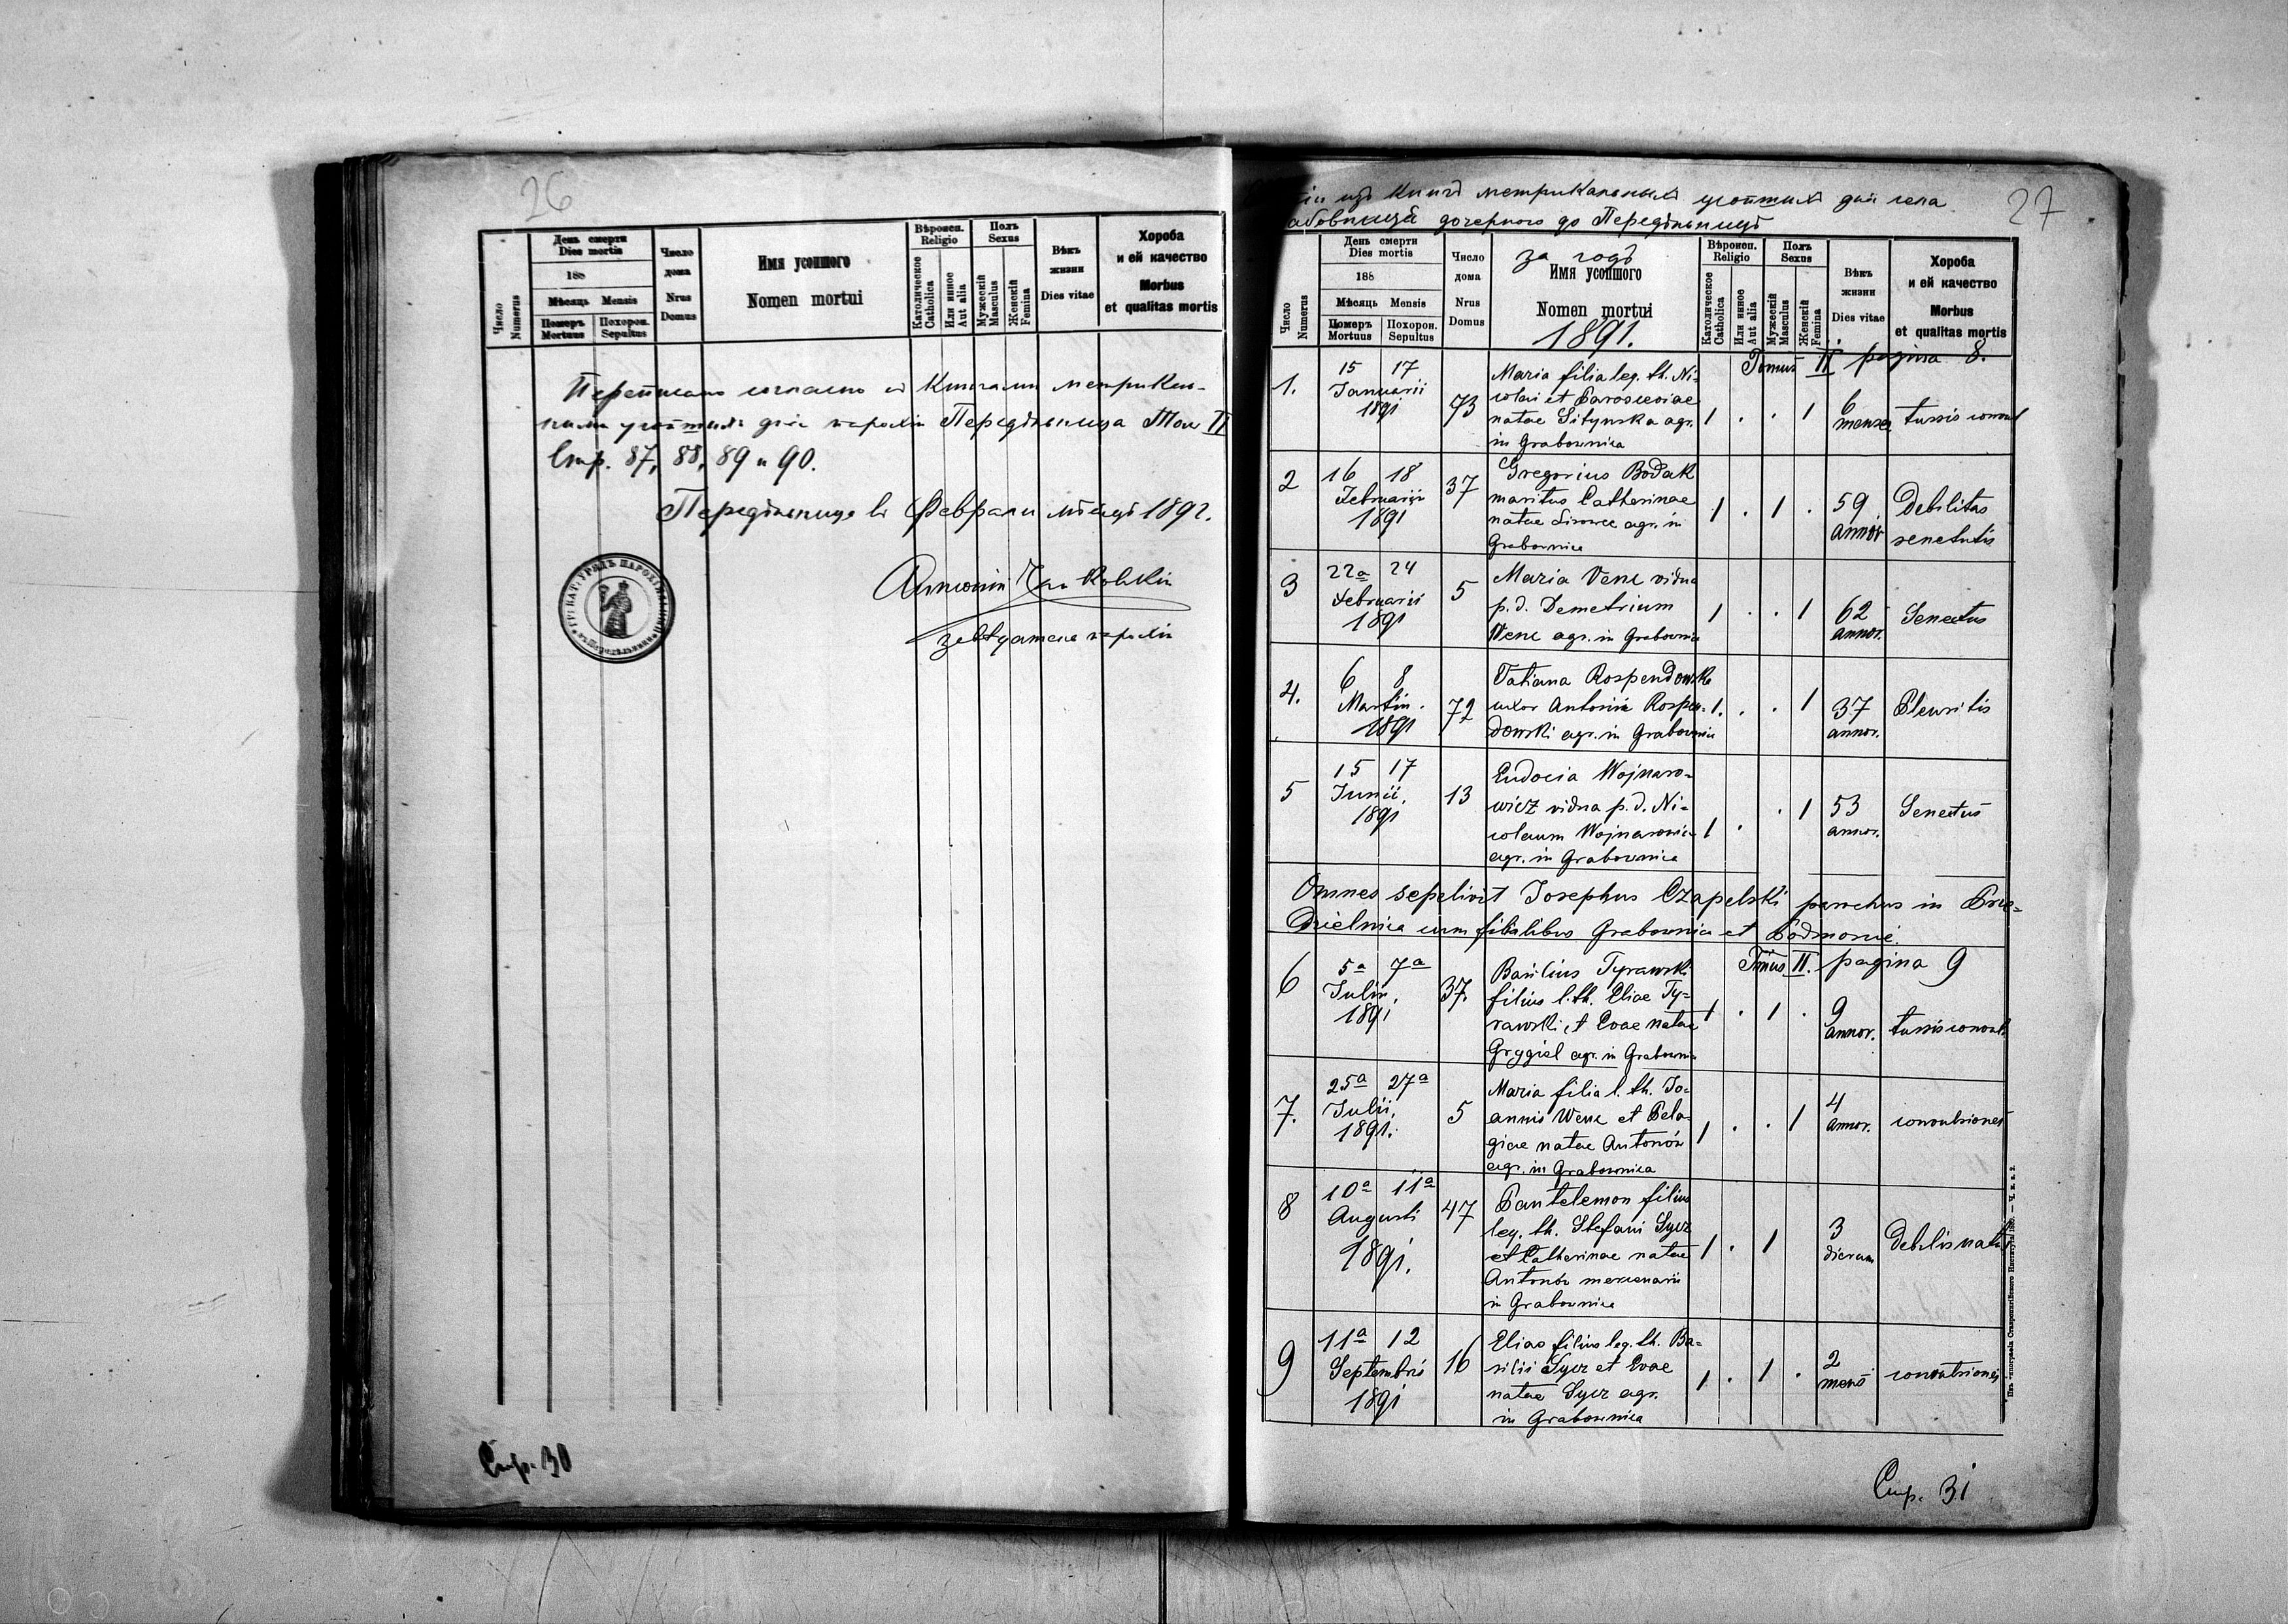 26
День смерти
Dies mortis
188
Мѣсяць Mensis
Померъ Mortuus
Похорон. Sepultus
Число Numerus
Число дома
Nrus Domus
Имя усопшого
Nomen mortui
Вѣроисп.
Religio
Католическое Catholica
Или инное Aut alia
Полъ
Sexus
Мужескій Masculus
Женскій Femina
Вѣкъ жизни
Dies vitae
Хороба
и ей качество
Morbus
et qualitas mortis
Переписано согласно съ Книгами метрикаль-
ними усопшихъ для парохіи Передѣльница Том II
Стр. 87, 88, 89 и 90.
Передѣльница в Февралѣ мѣсяцѣ 1892.
Антоній
завѣдатель парохіи
Стр. 30
27
изъ Книгъ метрикальныхъ усопшихъ для села
дочерного до Передѣльницѣ
День смерти
Dies mortis
188
Мѣсяць Mensis
Померъ Mortuus
Похорон. Sepultus
Число Numerus
Число дома
Nrus Domus
за годъ
Имя усопшого
Nomen mortui
1891.
Вѣроисп.
Religio
Католическое Catholica
Или инное Aut alia
Полъ
Sexus
Мужескій Masculus
Женскій Femina
Вѣкъ жизни
Dies vitae
Хороба
и ей качество
Morbus
et qualitas mortis
Tomus II pagina 8.
1.
15 17
Januarii
1891
73
Maria filia leg. th. Ni-
colai et Parasceviae
natae Sitynska agr.
in Grabownica
1 . . 1
6
menses
tussis convul
2
16 18
Februarii
1891
37
Gregorius Bodak
maritus Catherinae
natae agr. in
Grabownica
1 . 1 .
59
annor
Debilitas
senetutis
3
22a 24
Februarii
1891
5
Maria Wenc vidua
p. d. Demetrium
Wenc agr. in Grabownica
1 . . 1
62
annor.
Senectus
4.
6 8
Martii.
1891
72
Tatiana Rospendowska
uxor Antonii Rospen-
dowski agr. in Grabownica
1. . . 1
37
annor.
Pleuritis
5
15 17
Junii.
1891
13
Eudocia Wojnaro-
wicz vidua p. d. Ni-
colaum Wojnarowicz
agr. in Grabownica
1 . . 1
53
annor.
Senectus
Omnes sepelivit Josephus Czapelski parochus in Prze-
dzielnica cum filialibus Grabownica et Podmorie.
Tomus II. pagina 9
6
5a 7a
Julii,
1891
37.
Basilius Tyrawski
filius l. th. Eliae Ty-
rawski, et Evae natae
Grygiel agr. in Grabownica
1 . 1 .
9
annor.
tussis convuls
7.
25a 27a
Julii,
1891.
5
Maria filia l. th. Jo-
annis Wenc et Pela-
giae natae Antonów
agr. in Grabownica
1 . . 1
4
annor.
convulsiones
8
10a 11a
Augusti
1891.
47
Pantelemon filius
leg. th. Stefani Sycz
et Catherinae natae
Antonów mercenarii
in Grabownica
1 . 1
3
dierum
Debilis natus
9
11a 12
Septembris
1891
16
Elias filius leg. th. Ba-
silii Sycz et Evae
natae Sycz agr.
in Grabownica
1 . 1 .
2
mens
convulsiones
Стр. 31